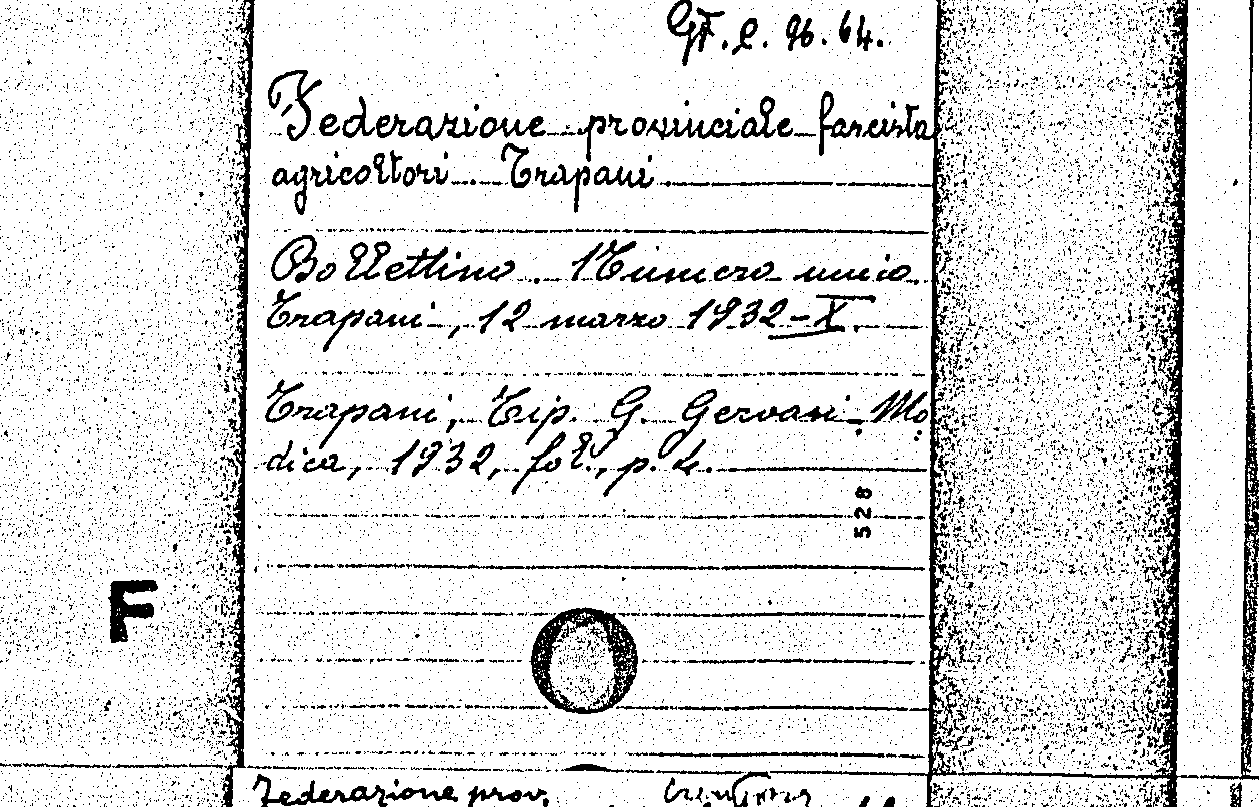 GF. C. 96. 64.
Federazione provinciale fascista
agricoltori. Trapani
Bollettino. Numero unico.
Trapani, 12 marzo 1932-X.
Trapani, Tip. G. Gervasi-Mo
dica, 1932, fol., p. 4.
528
F
Federazione prov.